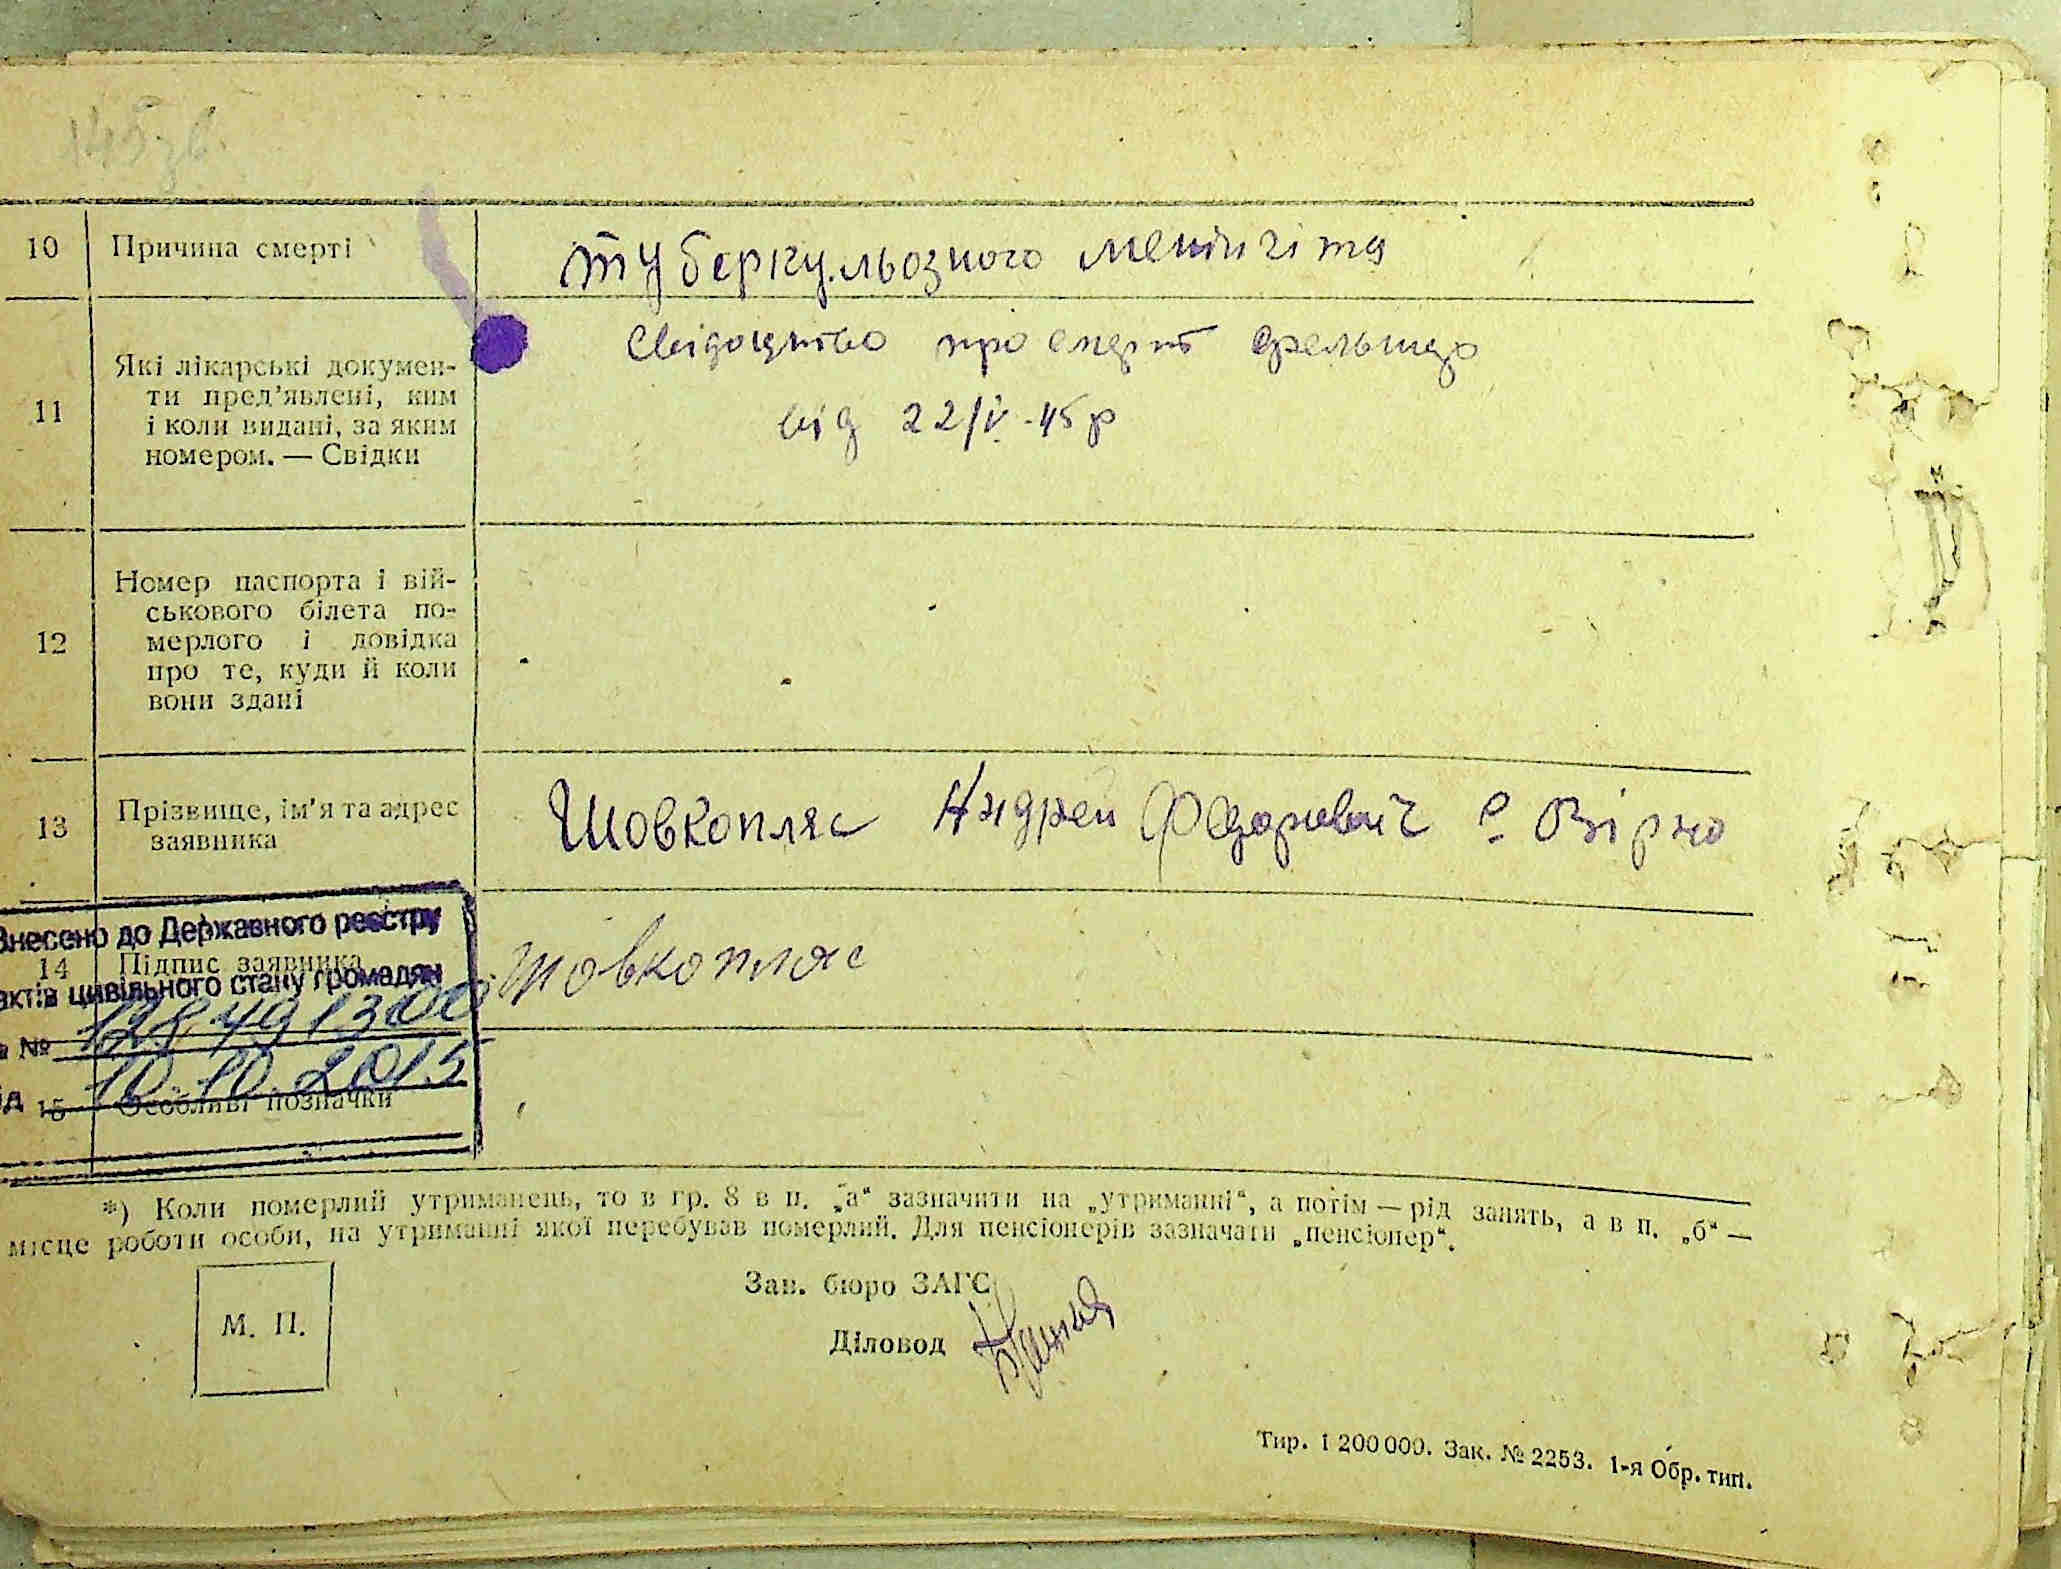 145 зв.
10 Причина смерті туберкульозного менінгіта
11 Які лікарські докумен-
ти пред'явлені, ким
і коли видані, за яким
номером. — Свідки
Свідоцтво про смерть фельшера
від 22/V-45р
12 Номер паспорта і вій-
ськового білета по-
мерлого і довідка
про те, куди й коли
вони здані
13 Прізвище, ім'я та адрес
заявника
Шовкопляс Андрей Федорович с. Вірно
Внесено до Державного реєстру
14 Підпис заявника Шовкопляс
актів цивільного стану громадян
№ 128491300
10.10.2015
15 Особливі позначки
*) Коли померлий утриманець, то в гр. 8 в п. „а“ зазначити на „утриманні“, а потім — рід занять, а в п. „б“ —
місце роботи особи, на утриманні якої перебував померлий. Для пенсіонерів зазначати „пенсіонер“.
М. П.
Зав. бюро ЗАГС
Діловод
Тир. 1 200 000. Зак. № 2253. 1-я Обр. тип.